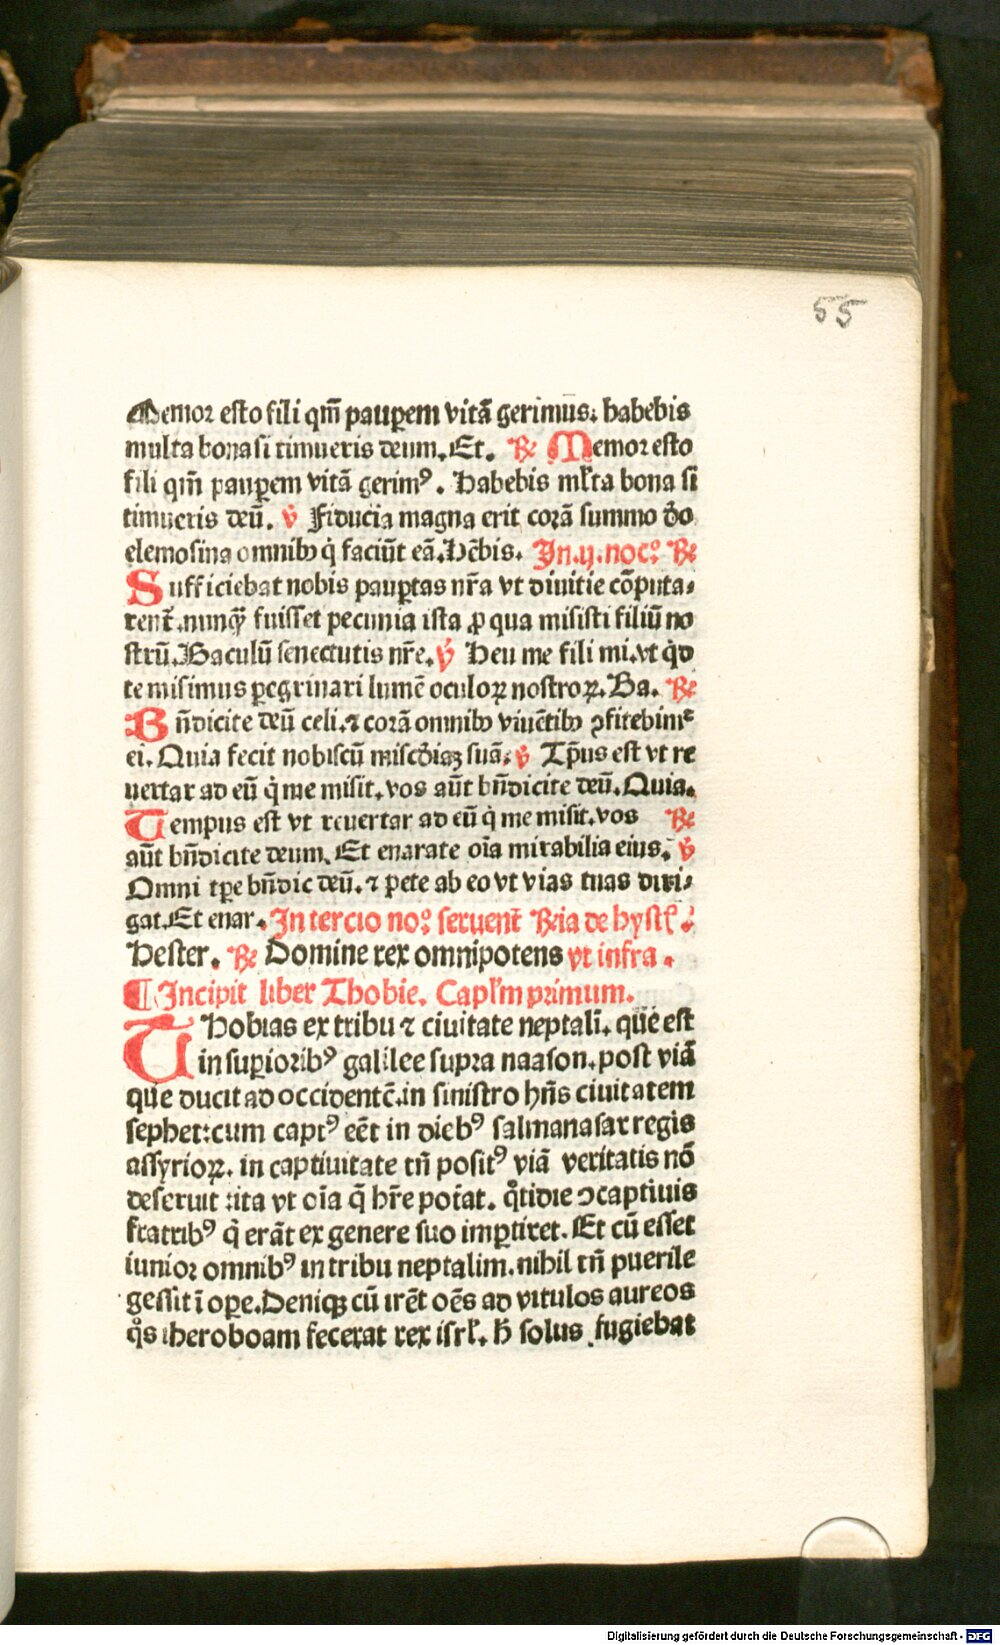 55
Memor esto fili qm̄ pauꝑem vitā gerimus: habebis
multa bona si timueris deum. Et. ℞ Memor esto
fili qm̄ pauꝑem vitā gerimꝰ. Habebis ml̓ta bona si
timueris deū. ℣ Fiducia magna erit corā summo d̄o
elemosina omnibꝫ q̇ faciūt eā. Hēbis. In .ij. nocꝰ ℞
Sufficiebat nobis pauꝑtas nr̄a vt diuitie cōputa⸗
rent̄. nunqꝫ fuisset pecunia ista ꝓ qua misisti filiū no
strū. Baculū senectutis nr̄e. ℣ Heu me fili mi. vt q̇d
te misimus ꝑegrinari lumē oculoꝝ nostroꝝ. Ba. ℞
Bn̄dicite deū celi. ⁊ corā omnibꝫ viuētibꝫ ꝯfitebimᷣ
ei. Quia fecit nobiscū miscd̄iaꝫ suā: ℣ Tp̄us est vt re
uertar ad eū q̇ me misit. vos aūt bn̄dicite deū. Quia.
Tempus est vt reuertar ad eū q̇ me misit. vos ℞
aūt bn̄dicite deum. Et enarate oīa mirabilia eius. ℣
Omni tꝑe bn̄dic deū. ⁊ pete ab eo vt vias tuas diri⸗
gat. Et enar. In tercio noꝰ seruent̄ ℞ia de hystꝭ.
Hester. ℞ Domine rex omnipotens vt infra.
¶ Incipit liber Thobie. Capl̓m primum.
THobias ex tribu ⁊ ciuitate neptali. que est
in suꝑioribꝰ galilee supra naason. post viā
que ducit ad occidentē. in sinistro hn̄s ciuitatem
sephet: cum captꝰ eēt in diebꝰ salmanasar regis
assyrioꝝ. in captiuitate tn̄ positꝰ viā veritatis nō
deseruit: ita vt oīa q̄ hr̄e poīat. qͦtidie ↄcaptiuis
fratribꝰ q̇ erāt ex genere suo imꝑtiret. Et cū esset
iunior omnibꝰ in tribu neptalim. nihil tn̄ puerile
gessit ī oꝑe. Deniqꝫ cū irēt oēs ad vitulos aureos
qͦs iheroboam fecerat rex isrl̓. ħ solus fugiebat
Digitalisierung gefördert durch die Deutsche Forschungsgemeinschaft - DFG